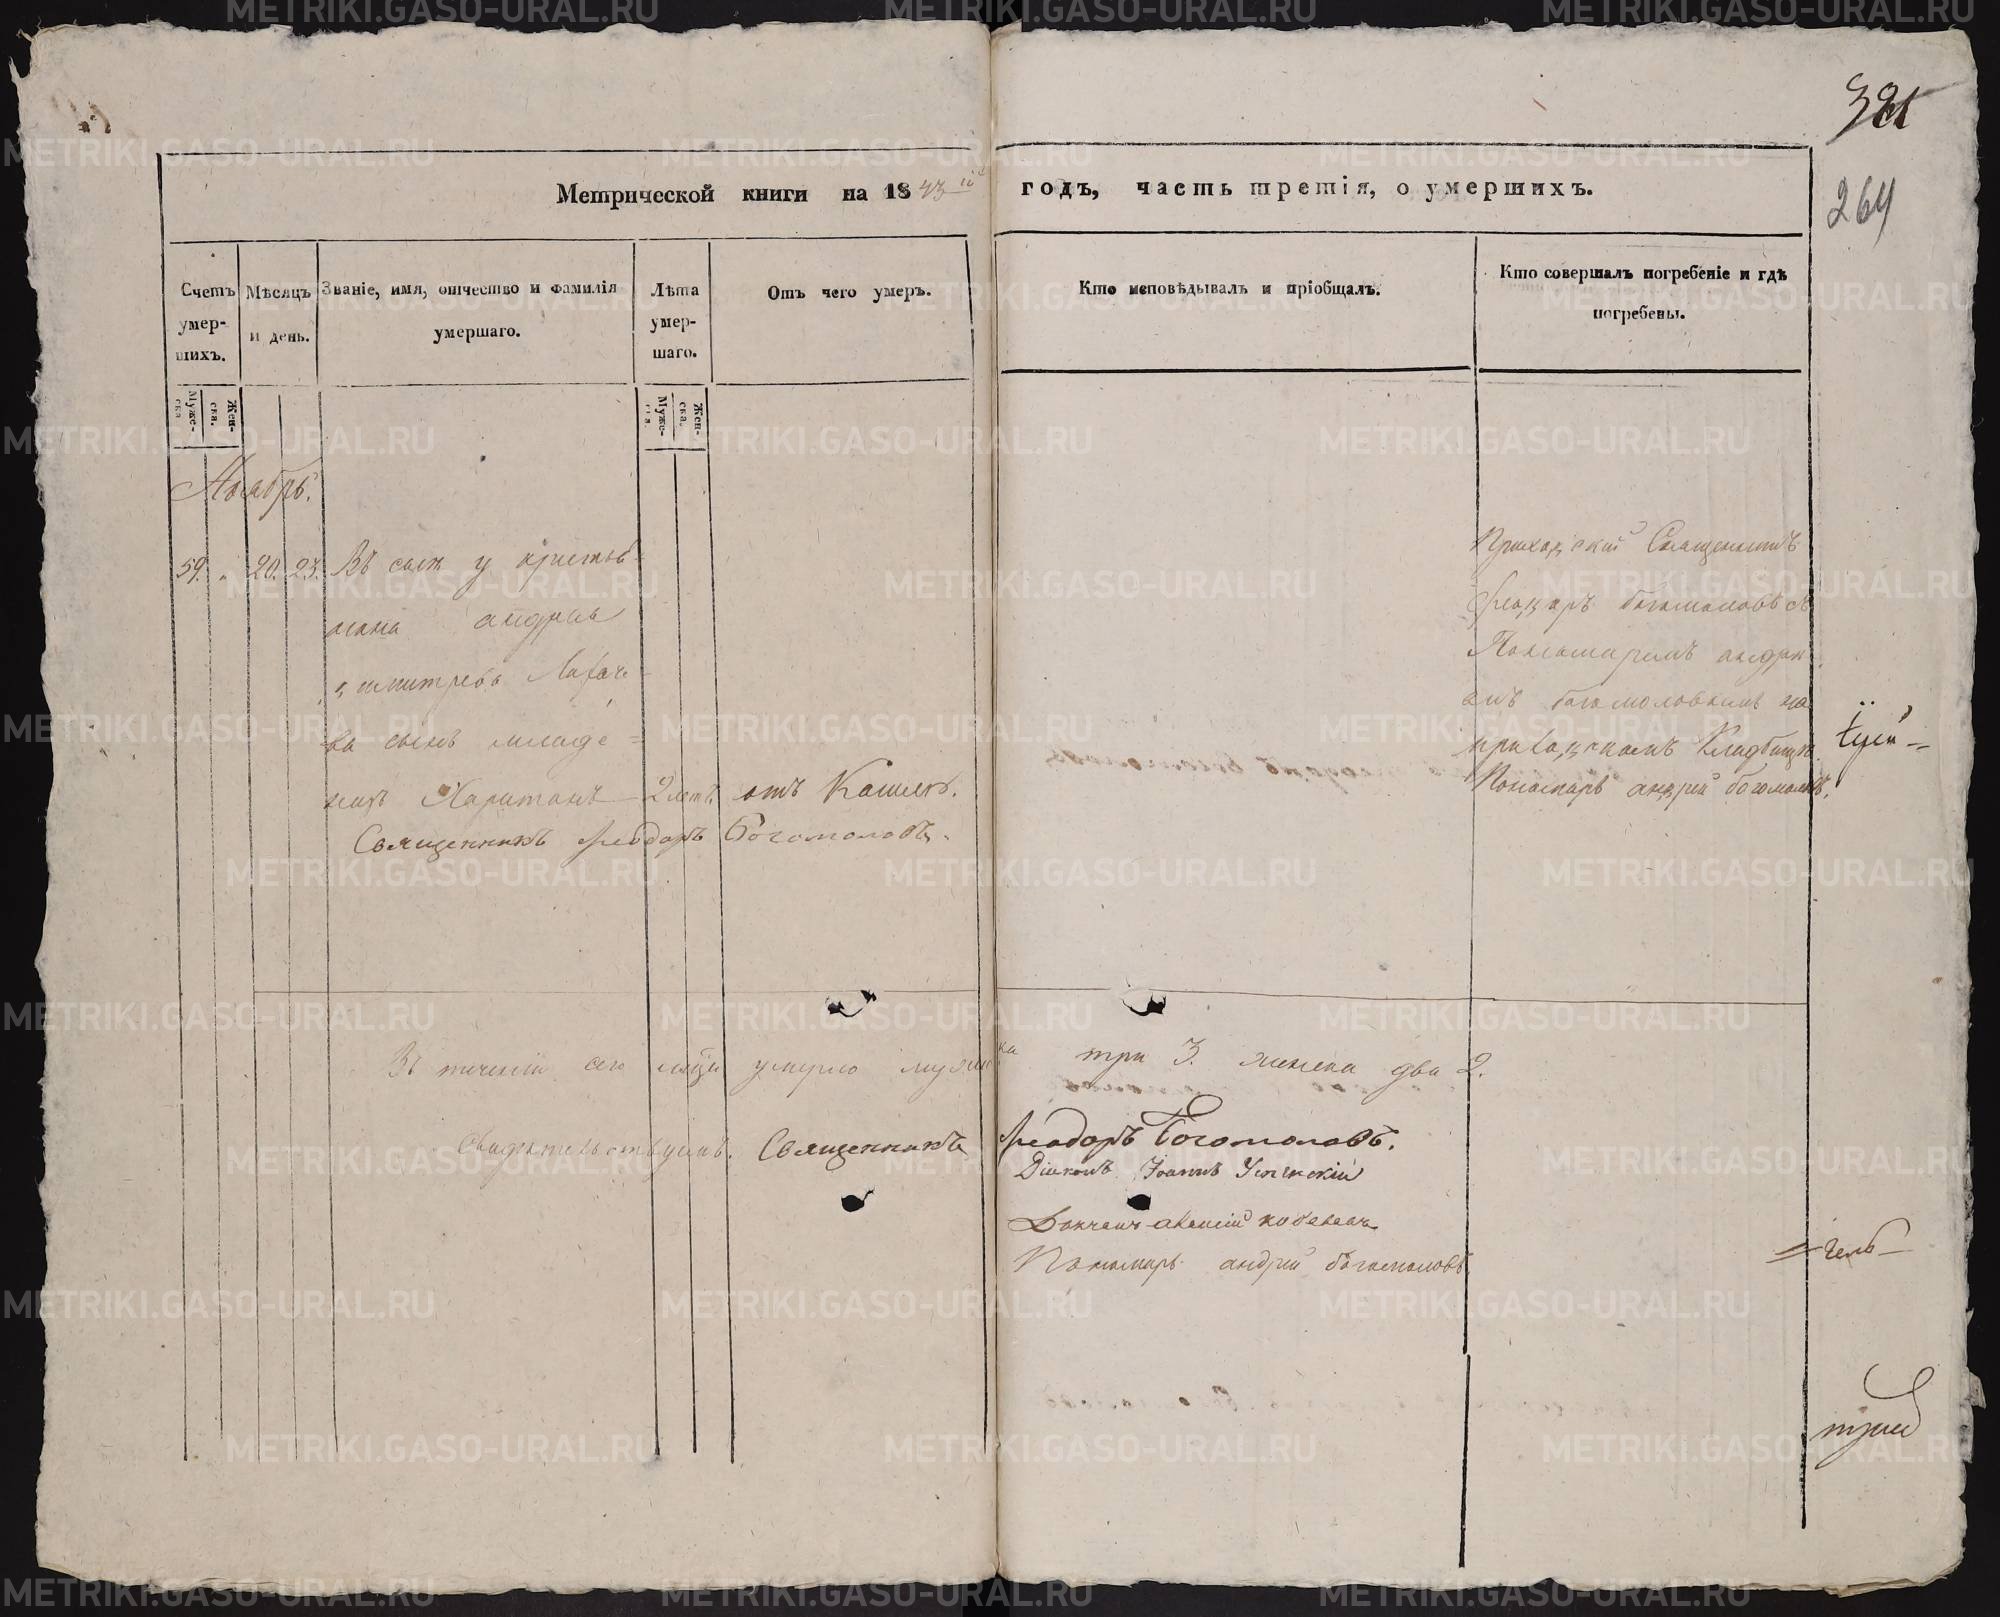 321
264
Метрической книги на 1843й годъ, часть третія, о умершихъ.
Счетъ умер-
шихъ.
Мѣсяцъ
и день.
Званіе, имя, отчество и фамилія
умершаго.
Лѣта
умер-
шаго.
Отъ чего умеръ.
Кто исповѣдывалъ и пріобщалъ.
Кто совершалъ погребеніе и гдѣ
погребены.
Муже-
ска.
Жен-
ска.
Муже-
ска.
Жен-
ска.
Ноябрь.
59. 20. 23. Въ селѣ у крестья-
нина андрея
дмитрева
ва сынъ младе-
нецъ Харитонъ 2 летъ. отъ Кашля.
Священникъ Феодоръ Богомоловъ.
Приходскій Священникъ
Феодоръ богомоловъ съ
Пономаремъ андре-
емъ богомоловымъ на
приходскомъ Кладбище
Пономарь андрей богомоловъ.
Въ течении сего мѣсяца умерло мужеска три 3. женска два 2.
Свидетельствуемъ. Священникъ Феодоръ Богомоловъ.
Діаконъ Іоаннъ Успенскій
Дьячекъ алексей
Пономарь андрей богомоловъ
METRIKI.GASO-URAL.RU